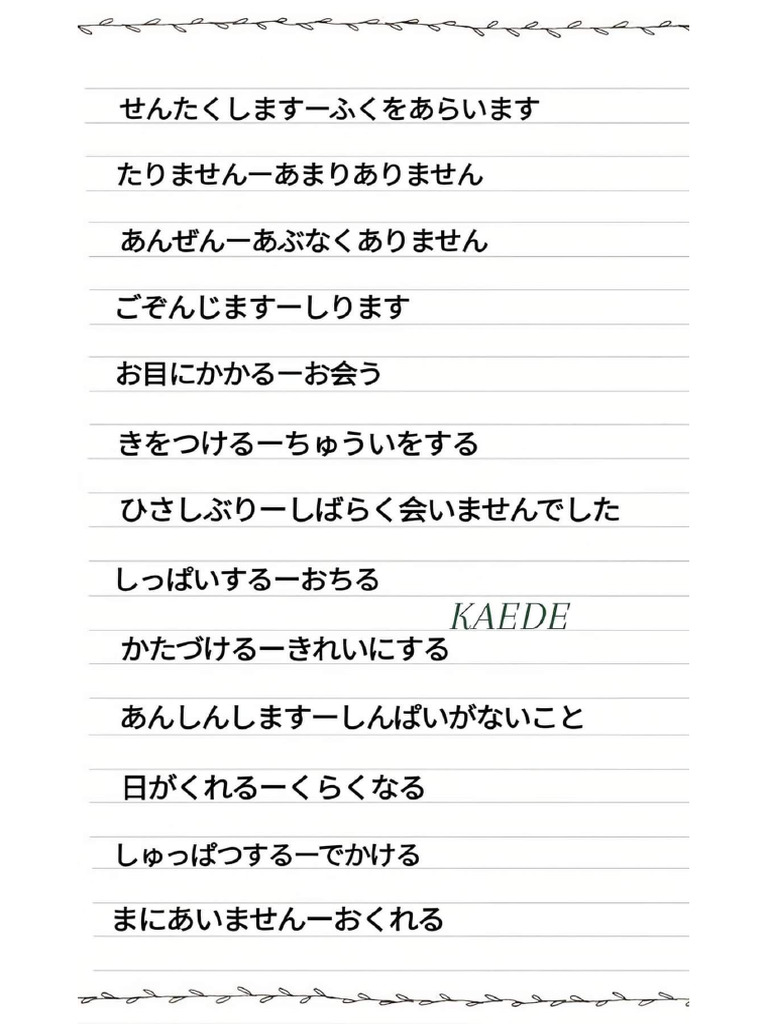 せんたくしますーふくをあらいます
たりませんーあまりありません
あんぜんーあぶなくありません
ごぞんじますーしります
お目にかかるーお会う
きをつけるーちゅういをする
ひさしぶりーしばらく会いませんでした
しっぱいするーおちる
KAEDE
かたづけるーきれいにする
あんしんしますーしんぱいがないこと
日がくれるーくらくなる
しゅっぱつするーでかける
まにあいませんーおくれる